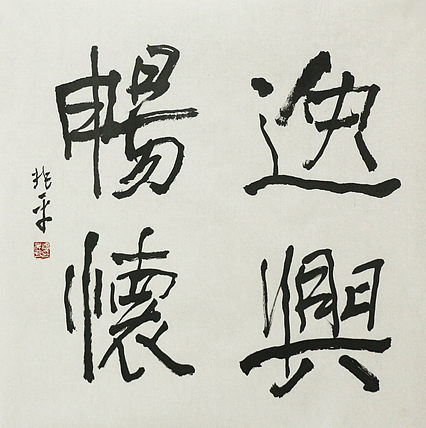 逸興
暢懷
平